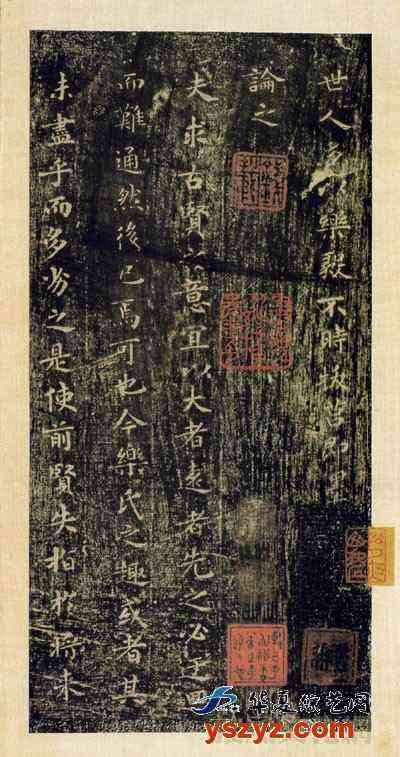 世人多以樂毅不時拔莒即墨
論之
夫求古賢之意宜以大者遠者先之必迂迴
而難通然後已焉可也今樂氏之趣或者其
未盡乎而多劣之是使前賢失指於將来
yszyz.com